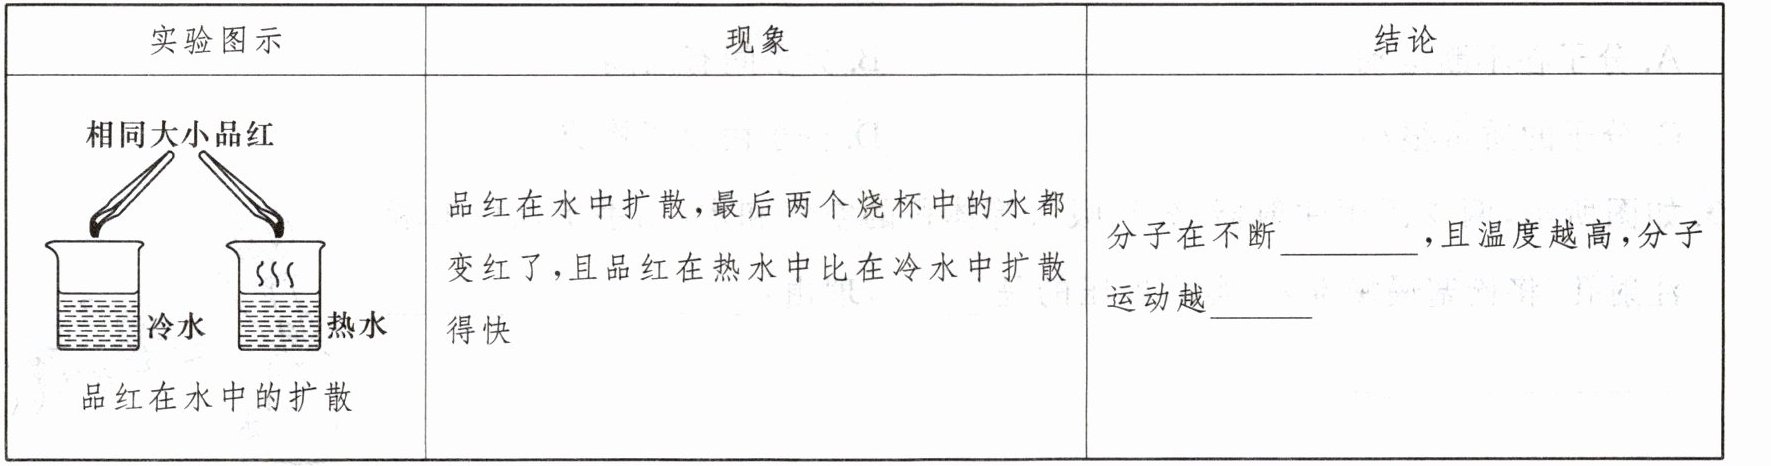 实验图示
现象
结论
相同大小品红
冷水
热水
品红在水中的扩散
品红在水中扩散,最后两个烧杯中的水都
变红了,且品红在热水中比在冷水中扩散
得快
分子在不断________,且温度越高,分子
运动越______